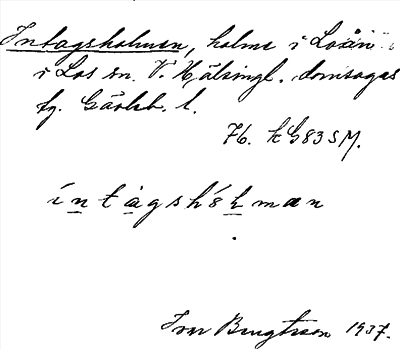 Intagsholmen, holme i Loån
i Los sn. V. Hälsingl. domsagas
fg. Gävleb. l.
76. k G83SM.
íntàgshólman
Ivar Bengtsson 1937.